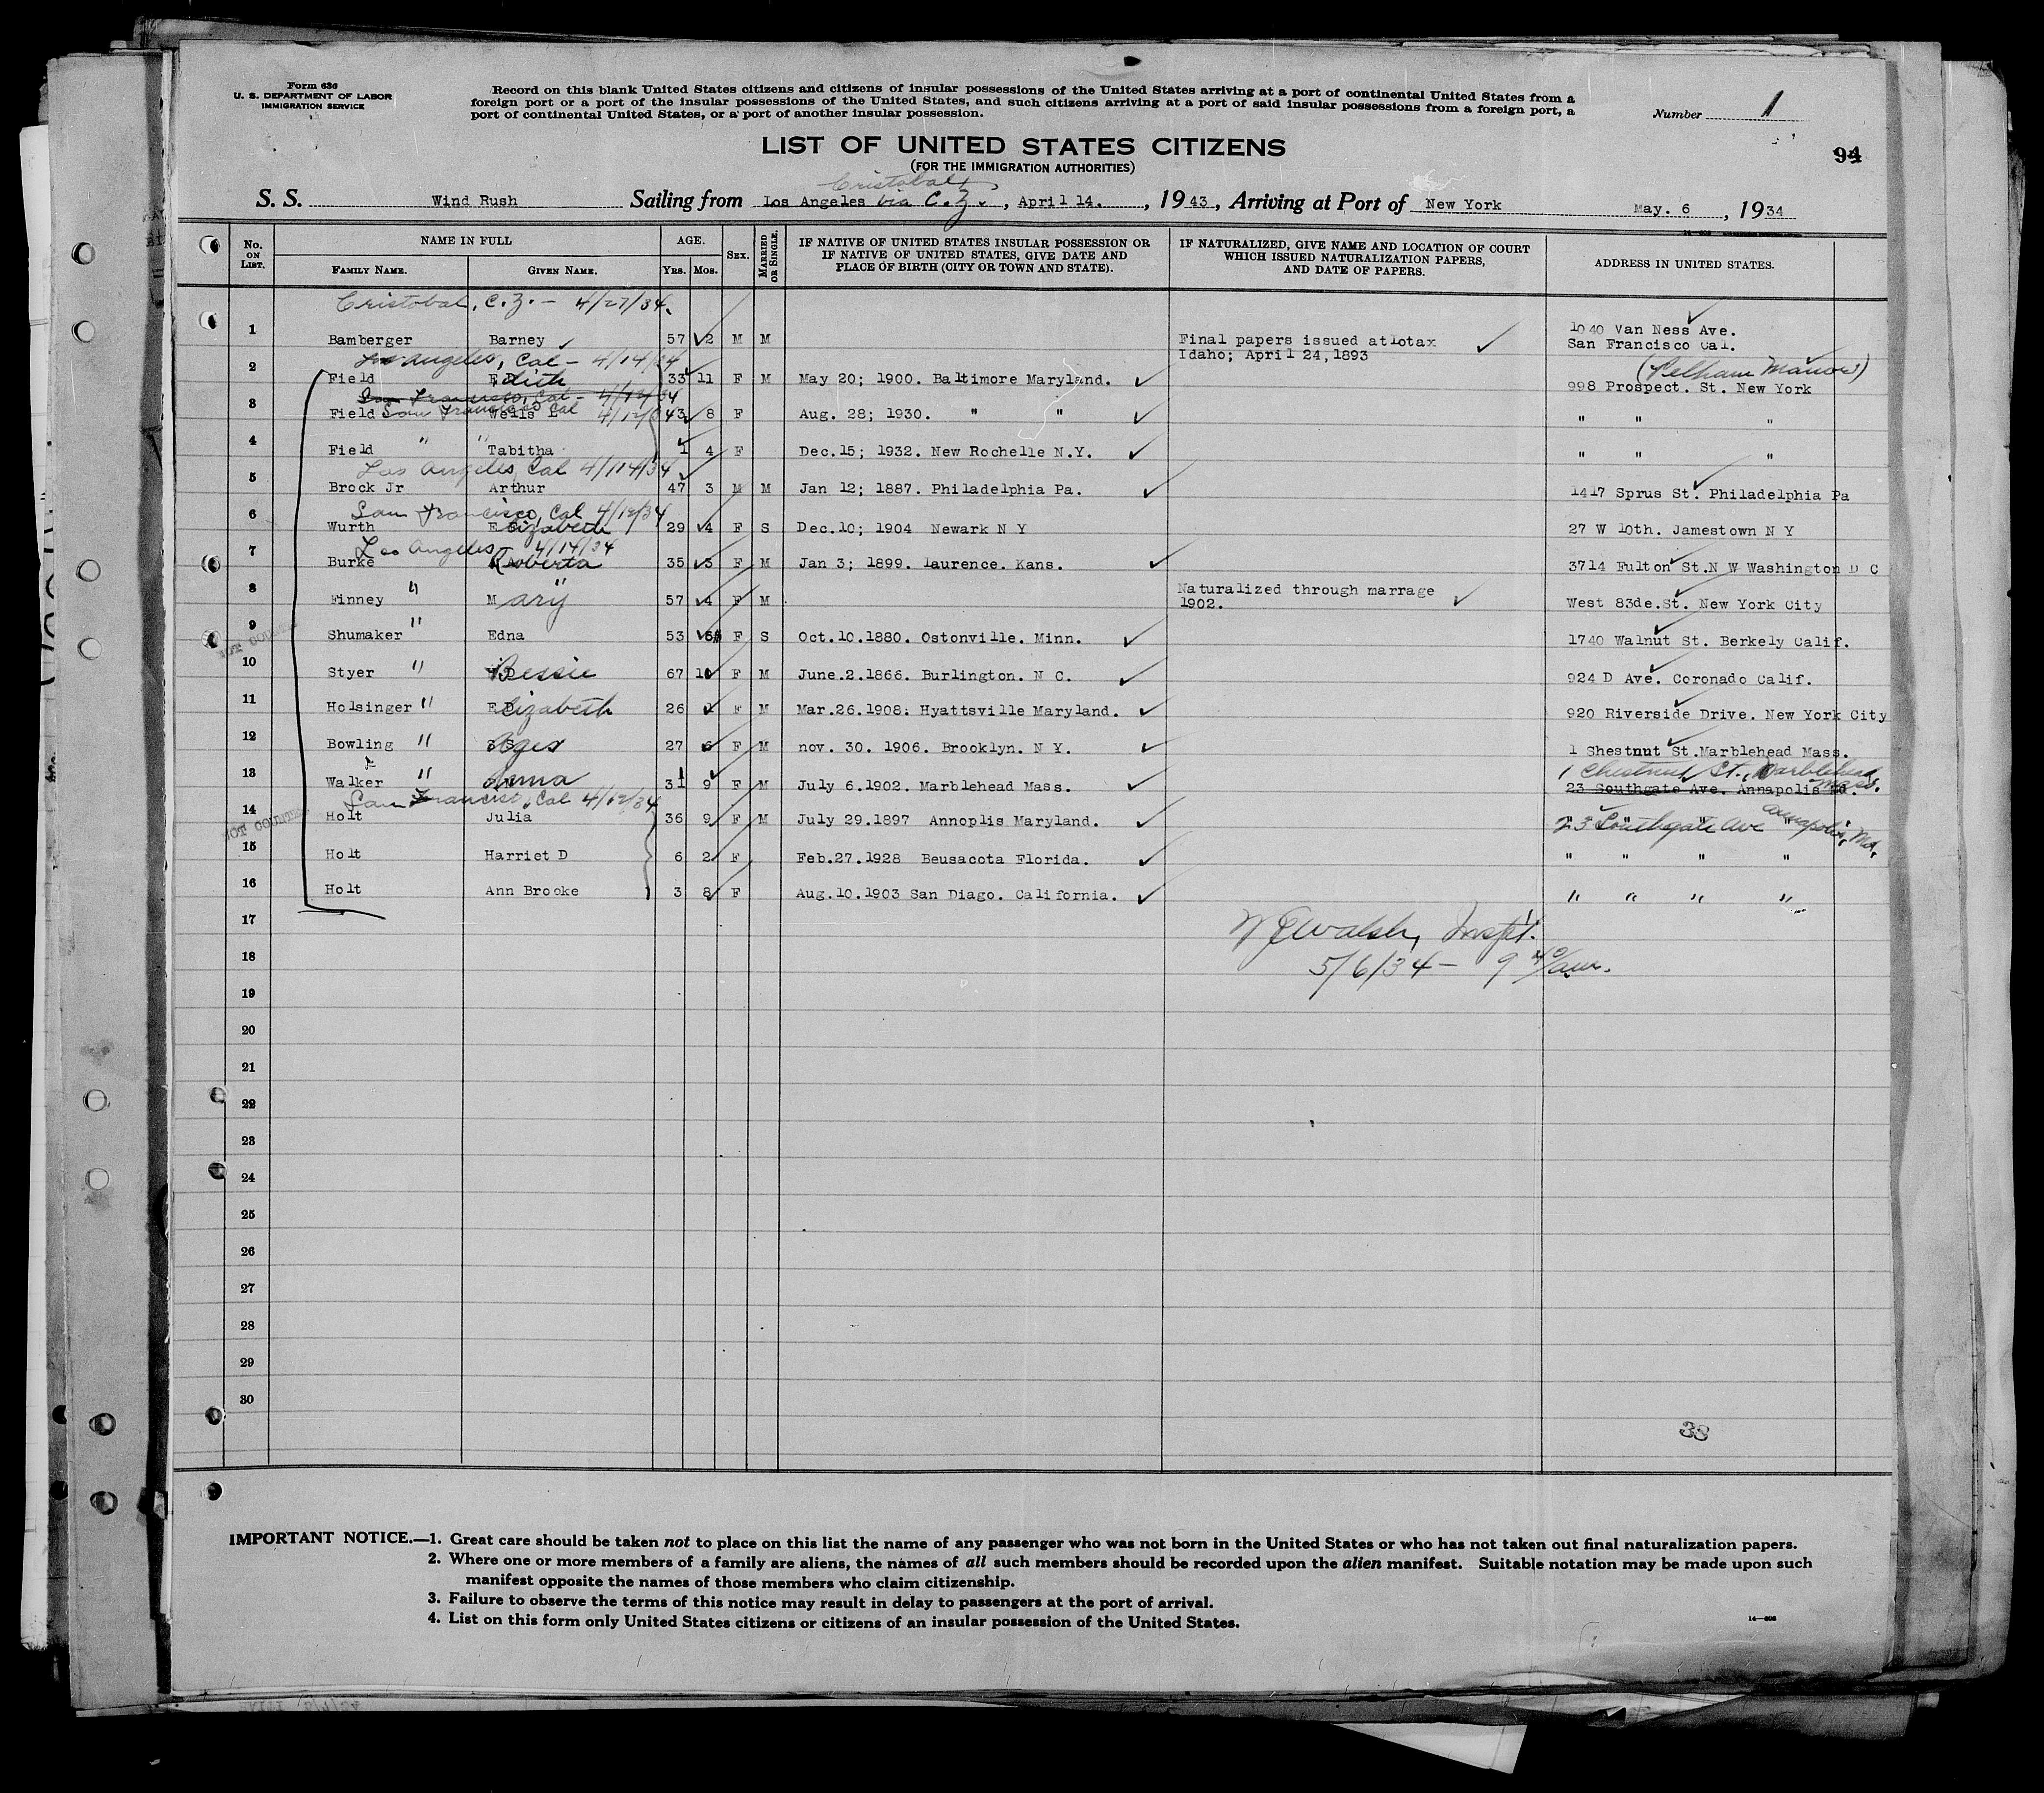 Form 630
U. S. DEPARTMENT OF LABOR
IMMIGRATION SERVICE
Record on this blank United States citizens and citizens of insular possessions of the United States arriving at a port of continental United States from a
foreign port or a port of the insular possessions of the United States, and such citizens arriving at a port of said insular possessions from a foreign port, a
port of continental United States, or a port of another insular possession.
Number 1
LIST OF UNITED STATES CITIZENS
(FOR THE IMMIGRATION AUTHORITIES)
94
Cristobal
S. S. Wind Rush Sailing from Los Angeles via C.Z., April 14. , 1943, Arriving at Port of New York May. 6 , 1934
No. ON LIST. NAME IN FULL AGE. SEX. MARRIED OR SINGLE. IF NATIVE OF UNITED STATES INSULAR POSSESSION OR IF NATIVE OF UNITED STATES, GIVE DATE AND PLACE OF BIRTH (CITY OR TOWN AND STATE). IF NATURALIZED, GIVE NAME AND LOCATION OF COURT WHICH ISSUED NATURALIZATION PAPERS, AND DATE OF PAPERS. ADDRESS IN UNITED STATES.
FAMILY NAME. GIVEN NAME. YRS. MOS.
Cristobal, C.Z. - 4/27/34.
1 Bamberger Barney 57 2 M M Final papers issued atlotax Idaho; April 24,1893 1040 Van Ness Ave. San Francisco Cal.
Los Angeles, Cal - 4/14/34
2 Field Edith 33 11 F M May 20; 1900. Baltimore Maryland. 998 Prospect. St. New York (Pelham Manor)
San Francisco, Cal - 4/12/34
San Francisco Cal 4/12/3
3 Field Wells L 43 8 F Aug. 28; 1930. " " " " "
4 Field " " Tabitha 1 4 F Dec.15; 1932. New Rochelle N.Y. " " "
Los Angeles, Cal 4/14/34
5 Brock Jr Arthur 47 3 M M Jan 12; 1887. Philadelphia Pa. 1417 Sprus St. Philadelphia Pa
San Francisco, Cal 4/12/34
6 Wurth Elizabeth 29 4 F S Dec.10; 1904 Newark N Y 27 W 10th. Jamestown N Y
Los Angeles - 4/14/34
7 Burke Roberta 35 3 F M Jan 3; 1899. Laurence. Kans. 3714 Fulton St.N W Washington D C
8 Finney " Mary " 57 4 F M Naturalized through marrage 1902. West 83de.St. New York City
9 Shumaker " Edna 53 6 F S Oct.10.1880. Ostonville. Minn. 1740 Walnut St. Berkely Calif.
10 Styer " Bessie 67 10 F M June.2.1866. Burlington. N C. 924 D Ave. Coronado Calif.
11 Holsinger " Elizabeth 26 1 F M Mar.26.1908. Hyattsville Maryland. 920 Riverside Drive. New York City
12 Bowling " Ages 27 6 F M nov. 30. 1906. Brooklyn. N Y. 1 Shestnut St.Marblehead Mass.
13 Walker " Anna 31 9 F M July 6.1902. Marblehead Mass. 23 Southgate Ave. Annapolis Md.
1 Chestnut St., Marblehead, Mass.
San Francisc, Cal 4/12/34
14 Holt Julia 36 9 F M July 29.1897 Annoplis Maryland. 23 Southgate Ave Annapolis, Md.
15 Holt Harriet D 6 2 F Feb.27.1928 Beusacota Florida. " " " "
16 Holt Ann Brooke 3 8 F Aug.10.1903 San Diago. California. " " " "
NOT COUNTED
NOT COUNTED
17
W J Walsh, Inspt.
18
5/6/34 - 9 40/am.
19
20
21
22
23
24
25
26
27
28
29
30
38
IMPORTANT NOTICE.—1. Great care should be taken not to place on this list the name of any passenger who was not born in the United States or who has not taken out final naturalization papers.
2. Where one or more members of a family are aliens, the names of all such members should be recorded upon the alien manifest. Suitable notation may be made upon such
manifest opposite the names of those members who claim citizenship.
3. Failure to observe the terms of this notice may result in delay to passengers at the port of arrival.
4. List on this form only United States citizens or citizens of an insular possession of the United States.